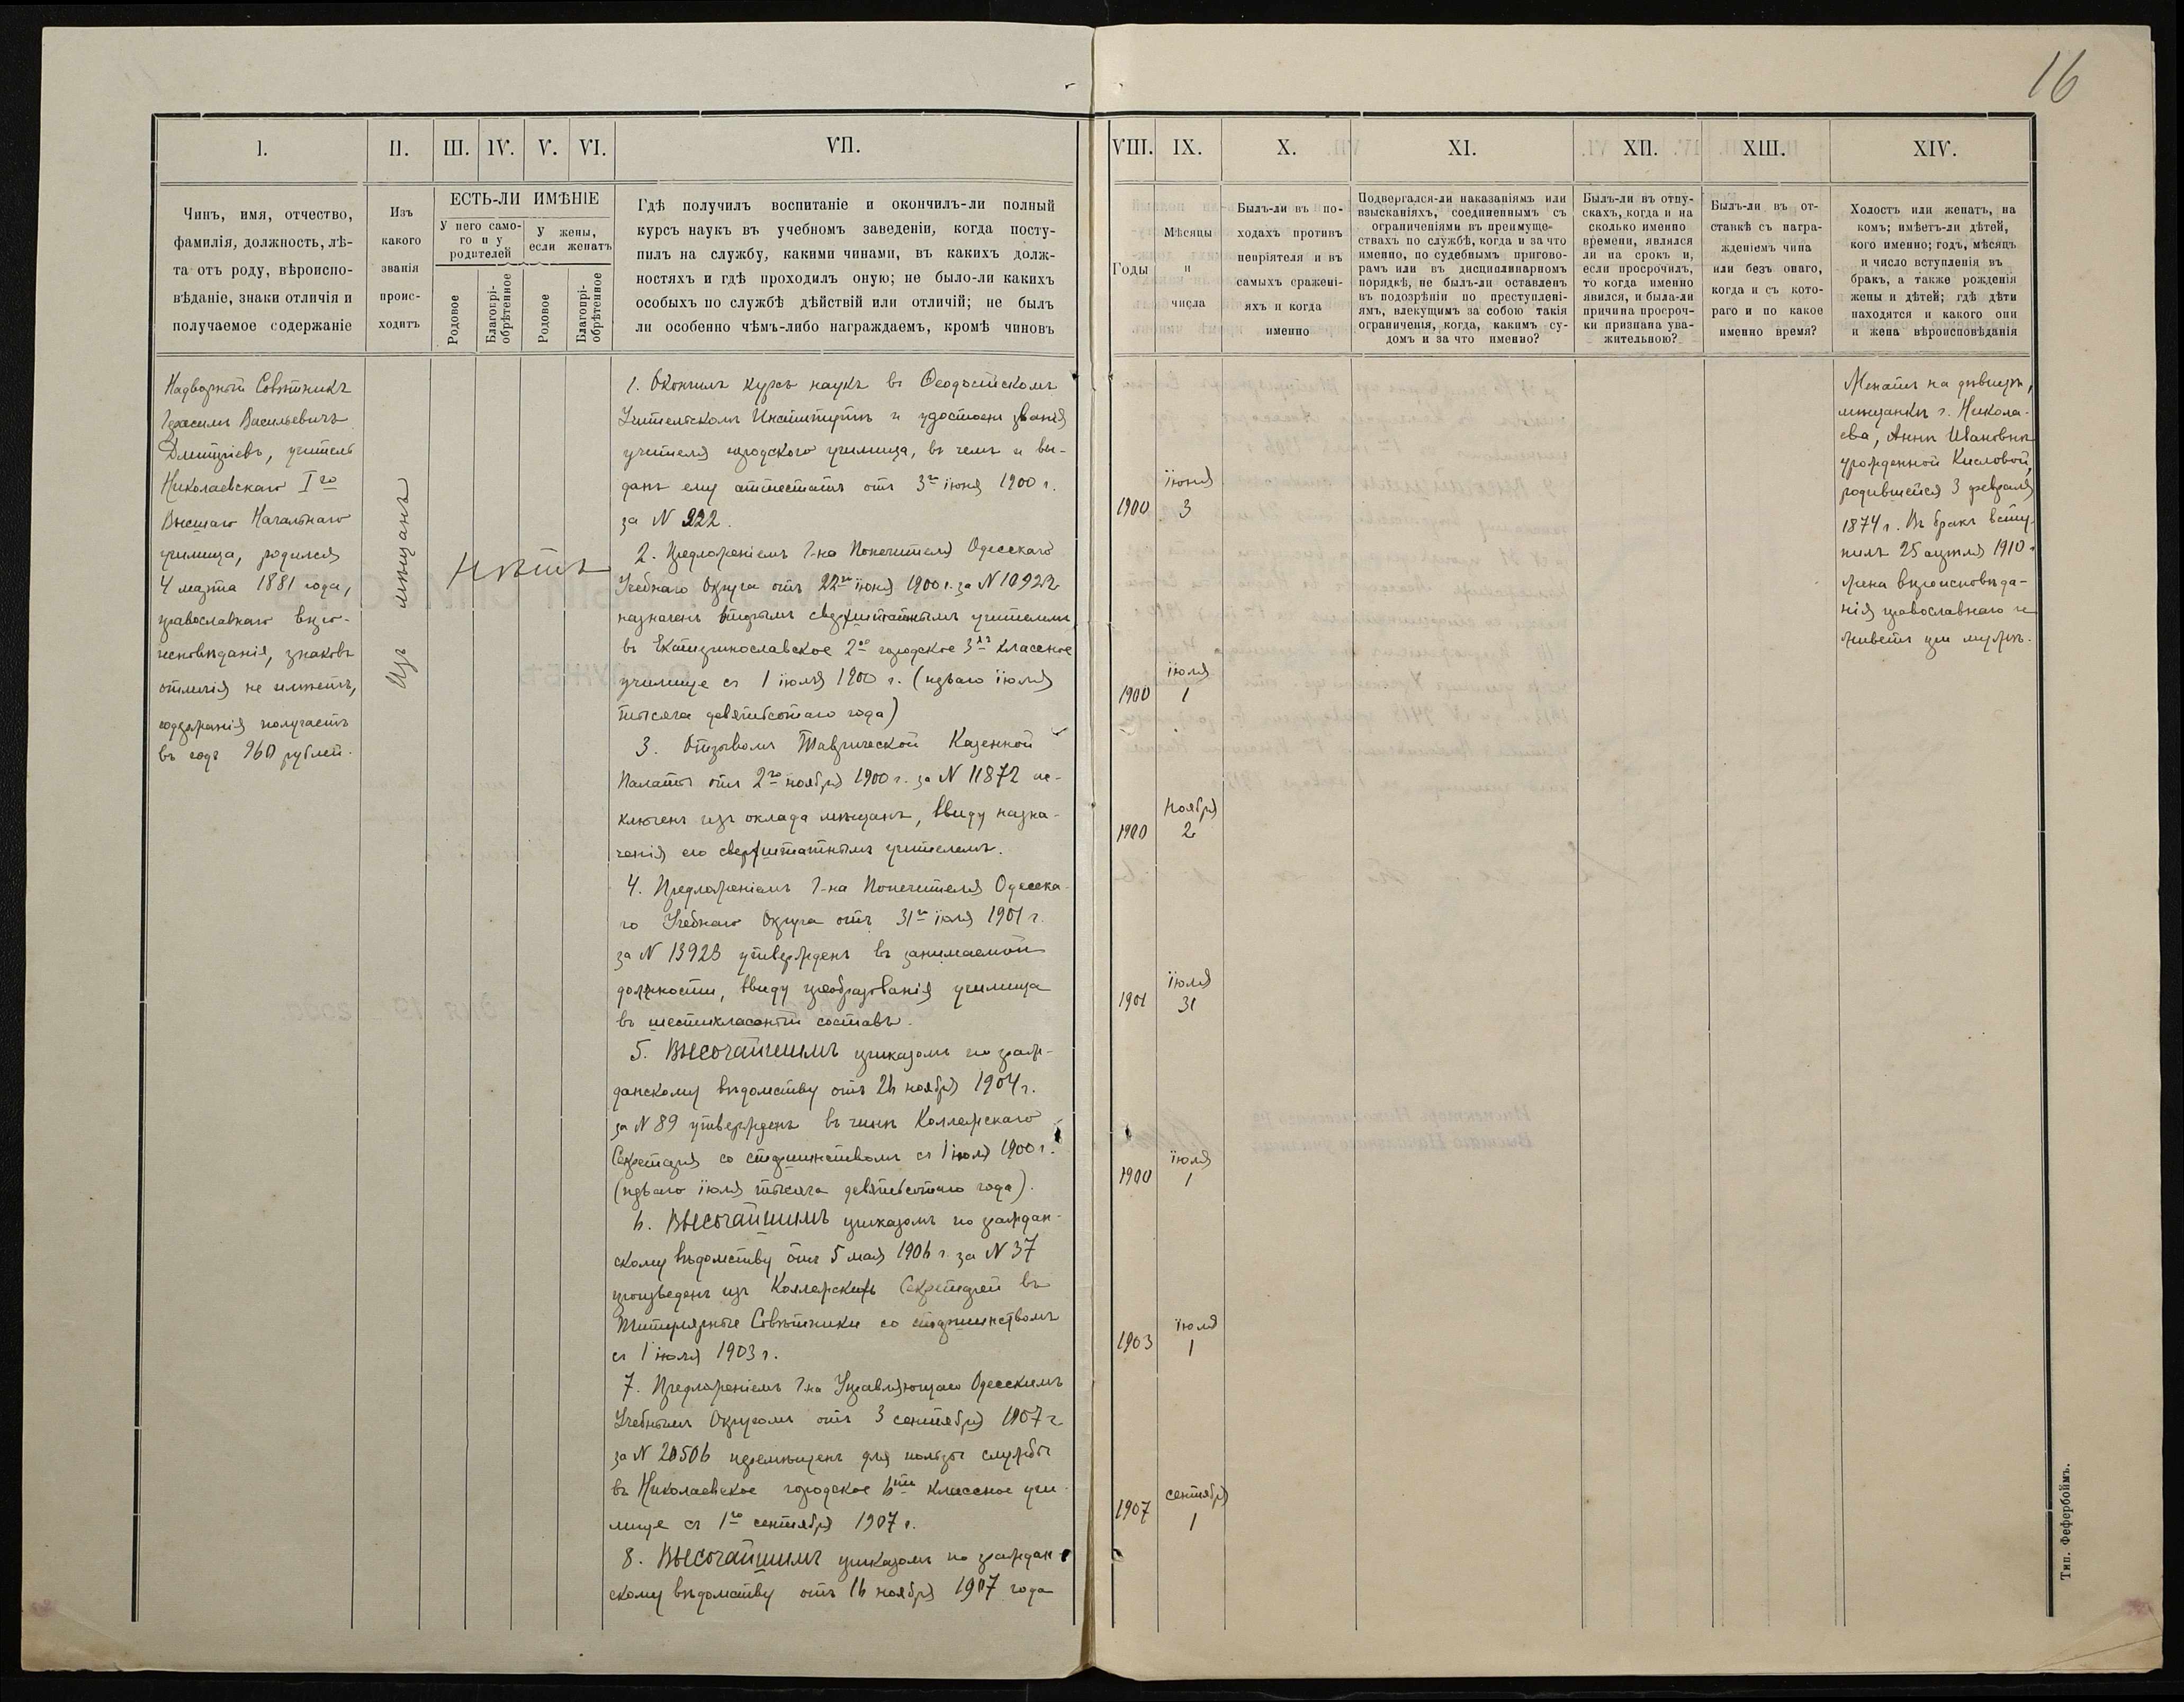 16
I.
II.
III.
IV.
V.
VI.
VII.
VIII.
IX.
X.
XI.
XII.
XIII.
XIV.
Чинъ, имя, отчество,
фамилія, должность, лѣ-
та отъ роду, вѣроиспо-
вѣданіе, знаки отличія и
получаемое содержаніе
Изъ
какого
званія
проис-
ходитъ
ЕСТЬ-ЛИ ИМѢНІЕ
У него само-
го и у
родителей
У жены,
если женатъ
Родовое
Благопрі-
обрѣтенное
Родовое
Благопрі-
обрѣтенное
Гдѣ получилъ воспитаніе и окончилъ-ли полный
курсъ наукъ въ учебномъ заведеніи, когда посту-
пилъ на службу, какими чинами, въ какихъ долж-
ностяхъ и гдѣ проходилъ оную; не было-ли какихъ
особыхъ по службѣ дѣйствій или отличій; не былъ
ли особенно чѣмъ-либо награждаемъ, кромѣ чиновъ
Годы
Мѣсяцы
и
числа
Былъ-ли въ по-
ходахъ противъ
непріятеля и въ
самыхъ сражені-
яхъ и когда
именно
Подвергался-ли наказаніямъ или
взысканіяхъ, соединеннымъ съ
ограниченіями въ преимуще-
ствахъ по службѣ, когда и за что
именно, по судебнымъ пригово-
рамъ или въ дисциплинарномъ
порядкѣ, не былъ-ли оставленъ
въ подозрѣніи по преступлені-
ямъ, влекущимъ за собою такія
ограниченія, когда, какимъ су-
домъ и за что именно?
Былъ-ли въ отпу-
скахъ, когда и на
сколько именно
времени, являлся
ли на срокъ и,
если просрочилъ,
то когда именно
явился, и была-ли
причина просроч-
ки признана ува-
жительною?
Былъ-ли въ от-
ставкѣ съ награ-
жденіемъ чина
или безъ онаго,
когда и съ кото-
раго и по какое
именно время?
Холостъ или женатъ, на
комъ; имѣетъ-ли дѣтей,
кого именно; годъ, мѣсяцъ
и число вступленія въ
бракъ, а также рожденія
жены и дѣтей; гдѣ дѣти
находятся и какого они
и жена вѣроисповѣданія
Надворный Совѣтникъ
Герасимъ Васильевичъ
Дмитріевъ, учитель
Николаевскаго Iго
Высшаго Начальнаго
училища, родился
4 марта 1881 года,
православнаго вѣро-
исповѣданія, знаковъ
отличія не имѣетъ,
содержанія получаетъ
въ годъ 960 рублей.
Изъ мѣщанъ
Нѣтъ
1. Окончилъ курсъ наукъ въ Ѳеодосійскомъ
Учительскомъ Институтѣ и удостоенъ званія
учителя городского училища, въ чемъ и вы-
данъ ему аттестатъ отъ 3го іюня 1900 г.
за N 222.
2. Предложеніемъ Г-на Попечителя Одесскаго
Учебнаго Округа отъ 22го іюня 1900 г. за N 10922
назначенъ вторымъ сверхштатнымъ учителемъ
въ Екатеринославское 2ое городское 3хъ классное
училище съ 1 іюля 1900 г. (перваго іюля
тысяча девятьсотаго года)
3. Отзывомъ Таврической Казенной
Палаты отъ 2го ноября 1900 г. за N 11872 ис-
ключенъ изъ оклада мѣщанъ, ввиду назна-
ченія его сверхштатнымъ учителемъ.
4. Предложеніемъ Г-на Попечителя Одесска-
го Учебнаго Округа отъ 31го іюля 1901 г.
за N 13923 утвержденъ въ занимаемой
должности, ввиду преобразованія училища
въ шестиклассный составъ.
5. Высочайшимъ приказомъ по граж-
данскому вѣдомству отъ 26 ноября 1904 г.
за N 89 утвержденъ въ чинѣ Коллежскаго
Секретаря со старшинствомъ съ 1 іюля 1900 г.
(перваго іюля тысяча девятьсотаго года).
6. Высочайшимъ приказомъ по граждан-
скому вѣдомству отъ 5 мая 1906 г. за N 37
произведенъ изъ Коллежскихъ Секретарей въ
Титулярные Совѣтники со старшинствомъ
съ 1 іюля 1903 г.
7. Предложеніемъ Г-на Управляющаго Одесскимъ
Учебнымъ Округомъ отъ 3 сентября 1907 г.
за N 20506 перемѣщенъ для пользы службы
въ Николаевское городское 6ти классное учи-
лище съ 1го сентября 1907 г.
8. Высочайшимъ приказомъ по граждан-
скому вѣдомству отъ 16 ноября 1907 года
1900 іюня 3
1900 іюля 1
1900 ноября 2
1901 іюля 31
1900 іюля 1
1903 іюля 1
1907 сентября 1
Женатъ на дѣвицѣ,
мѣщанкѣ г. Никола-
ева, Аннѣ Ивановнѣ
урожденной Кисловой,
родившейся 3 февраля
1874 г. Въ бракъ всту-
пилъ 25 апрѣля 1910 г.
Жена вѣроисповѣда-
нія православнаго и
живетъ при мужѣ.
Тип. Фефербоймъ.